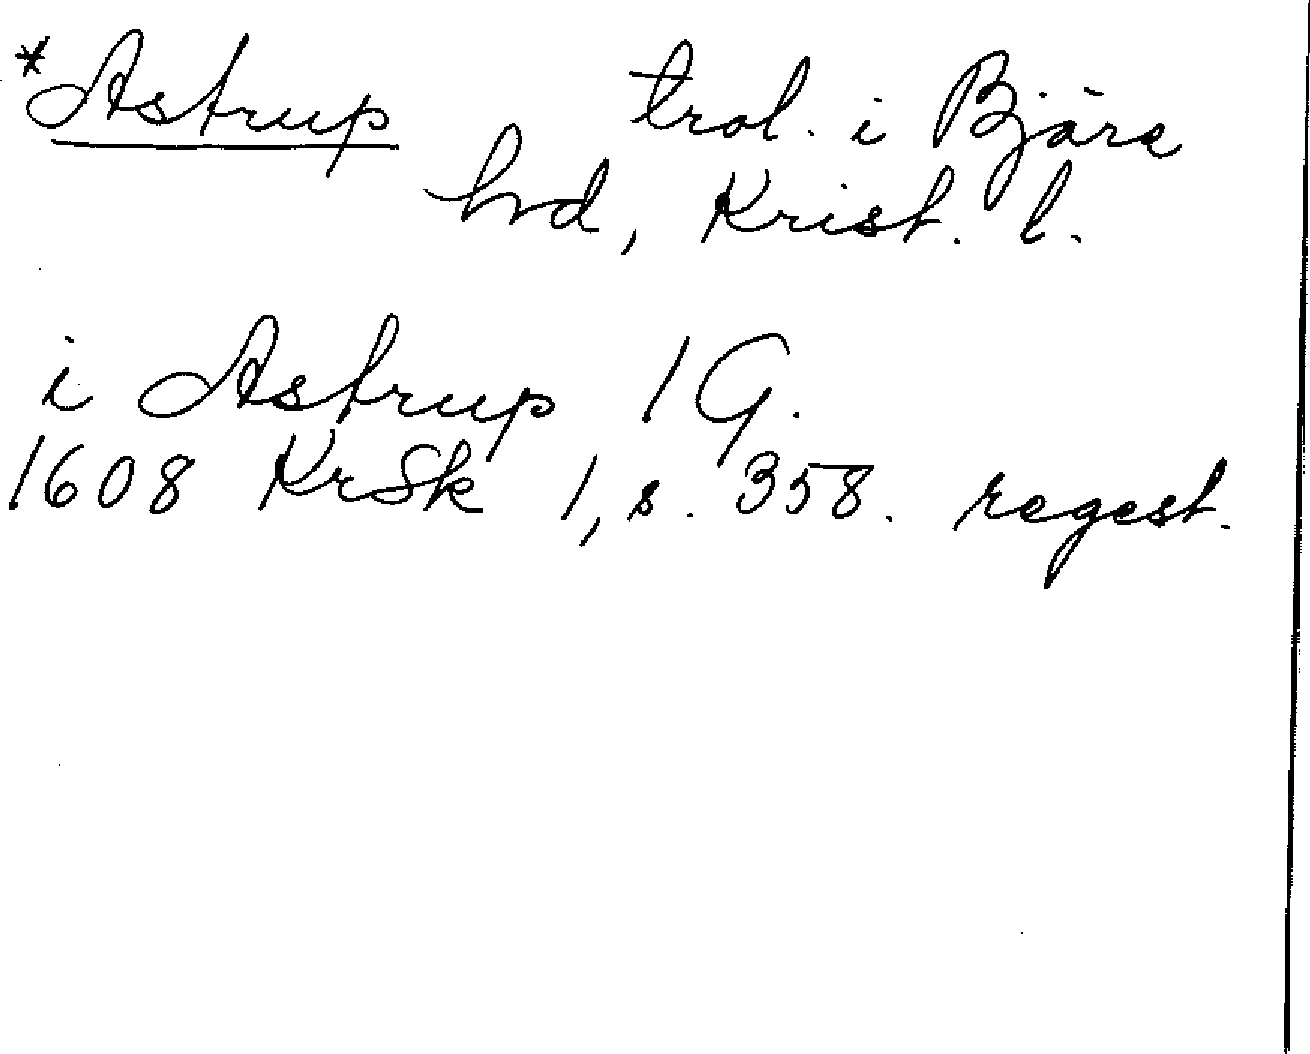 *Astrup trol. i Bjäre
hrd, Krist. l.
i Astrup 1 G.
1608 KrSk 1, s. 358. regest.